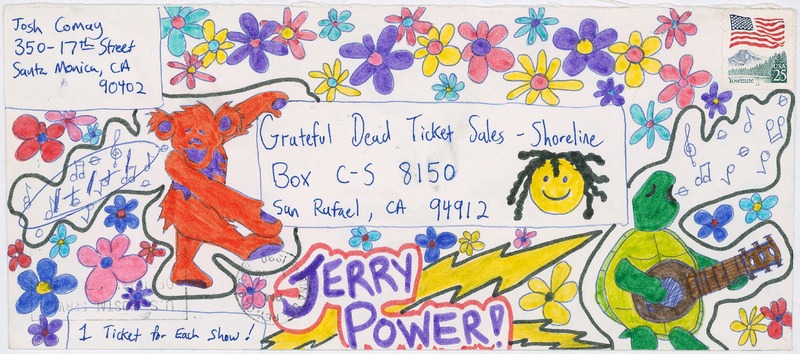 Josh Comay
350-17th Street
Santa Monica, CA
90402
USA
25
Yosemite
Grateful Dead Ticket Sales - Shoreline
Box C-S 8150
San Rafael, CA 94912
JERRY
POWER!
1 Ticket for Each Show!